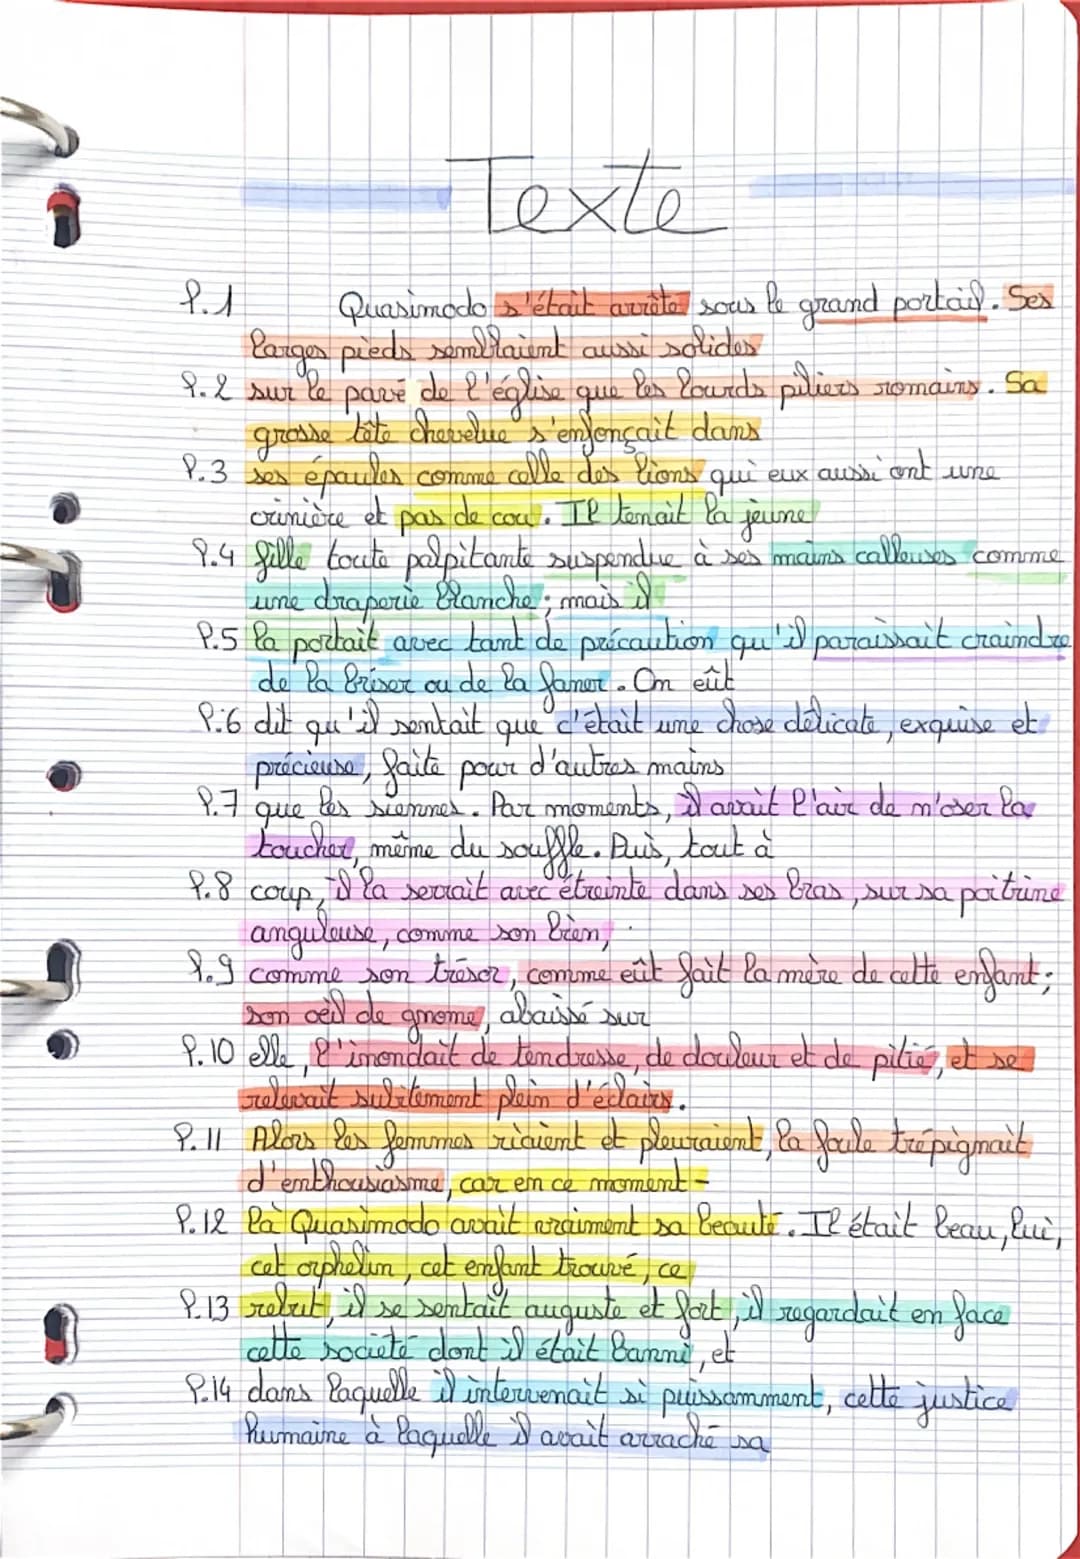 Texte
l.1 Quasimodo s'était arrêté sous le grand portail. Ses
larges pieds semblaient aussi solides
l.2 sur le pavé de l'église que les lourds piliers romains. Sa
grosse tête chevelue s'enfonçait dans
l.3 ses épaules comme celle des lions qui eux aussi ont une
crinière et pas de cou. Il tenait la jeune
l.4 fille toute palpitante suspendue à ses mains calleuses comme
une draperie blanche ; mais il
l.5 la portait avec tant de précaution qu'il paraissait craindre
de la briser ou de la faner. On eût
l.6 dit qu'il sentait que c'était une chose délicate, exquise et
précieuse, faite pour d'autres mains
l.7 que les siennes. Par moments, il avait l'air de n'oser la
toucher, même du souffle. Puis, tout à
l.8 coup, il la serrait avec étreinte dans ses bras, sur sa poitrine
anguleuse, comme son bien,
l.9 comme son trésor, comme eût fait la mère de cette enfant ;
son œil de gnome, abaissé sur
l.10 elle, l'inondait de tendresse, de douleur et de pitié, et se
relevait subitement plein d'éclairs.
l.11 Alors les femmes riaient et pleuraient, la foule trépignait
d'enthousiasme, car en ce moment-
l.12 là Quasimodo avait vraiment sa beauté. Il était beau, lui,
cet orphelin, cet enfant trouvé, ce
l.13 rebut, il se sentait auguste et fort, il regardait en face
cette société dont il était banni, et
l.14 dans laquelle il intervenait si puissamment, cette justice
humaine à laquelle il avait arraché sa